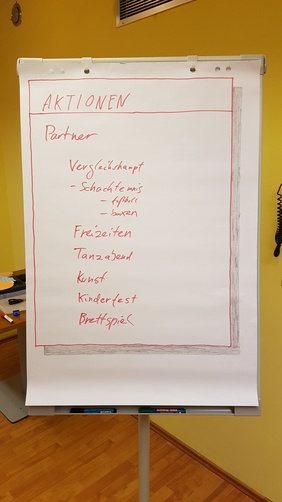 AKTIONEN
Partner
Vergleichskampf
- Schachtennis
- fußball
- boxen
Freizeiten
Tanzabend
Kunst
Kinderfest
Brettspiel